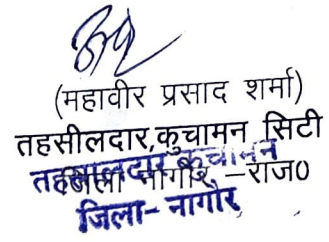 (महावीर प्रसाद शर्मा)
तहसीलदार,कुचामन सिटी
जिला नागौर, –राज0
तहसीलदार कुचामन
जिला- नागौर